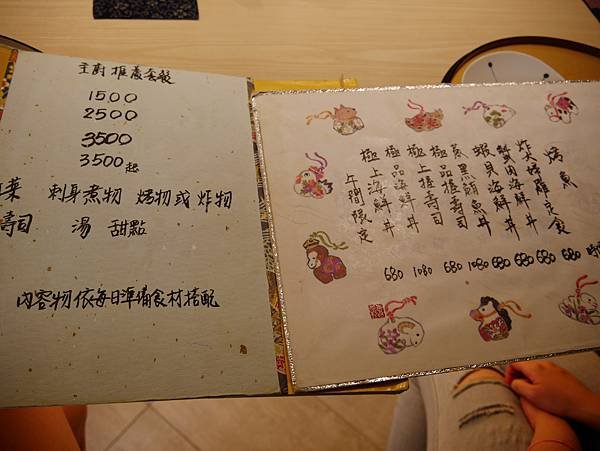 主廚推薦套餐
1500
2500
3500
3500起
菜 刺身煮物 烤物或炸物
壽司 湯 甜點
內容物依每日準備食材搭配
烤魚 時
炸天婦羅定食 680
蟹肉海鮮丼 680
蝦貝海鮮丼 680
黑鮪魚丼 680
極品握壽司 1080
極上握壽司 680
極品海鮮丼 1080
極上海鮮丼 680
午間限定